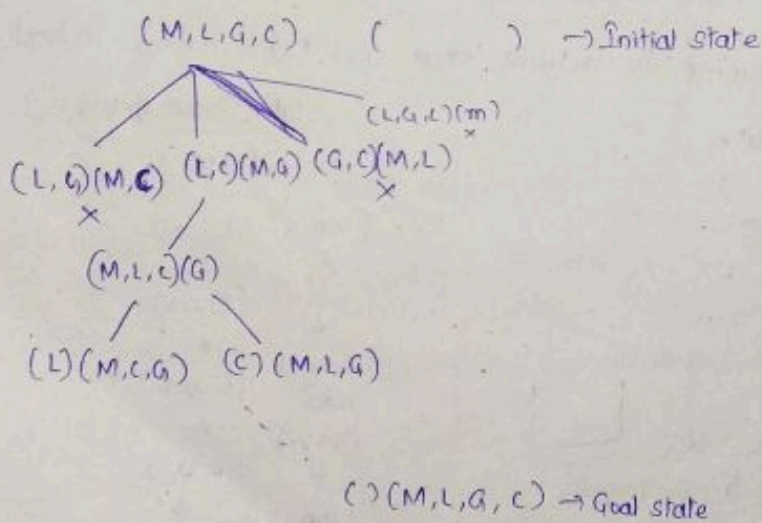 (M, L, G, C) ( ) → Initial state
(L, G, C) (m)
×
(L, G) (M, C) (L, C) (M, G) (G, C) (M, L)
× ×
(M, L, C) (G)
(L) (M, C, G) (C) (M, L, G)
( ) (M, L, G, C) → Goal state